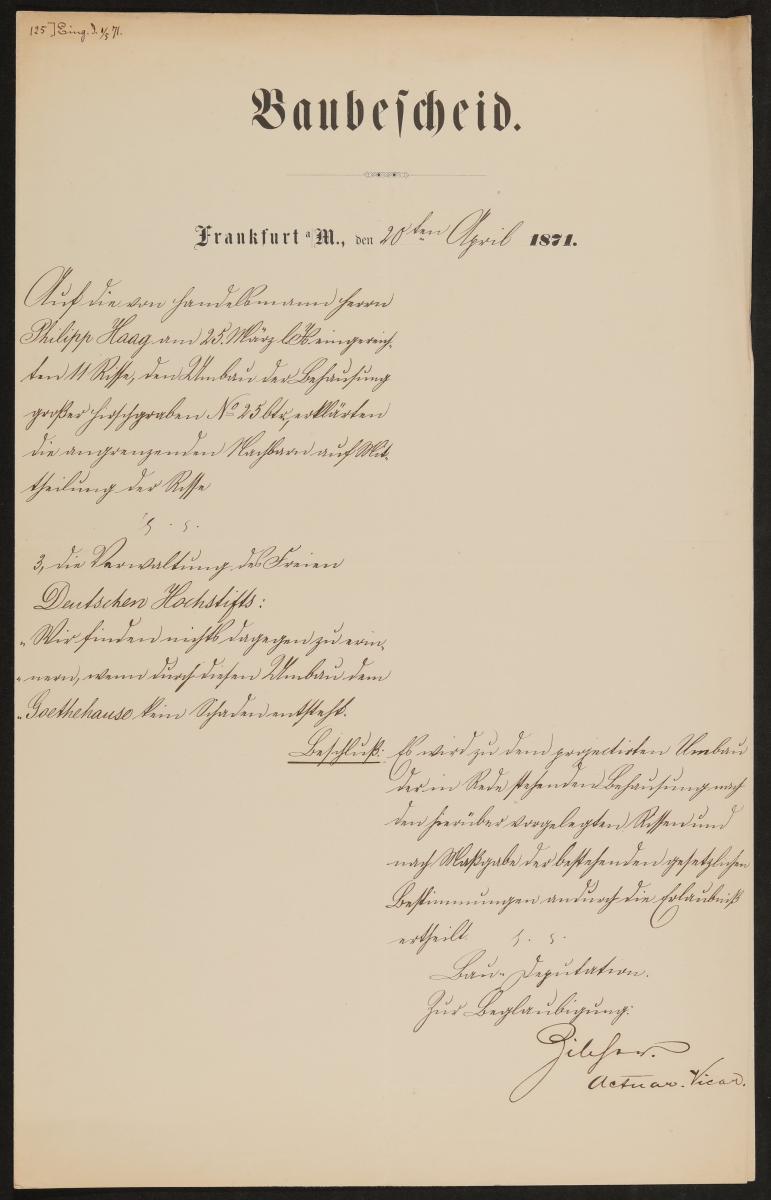 125] Eing. d. 1/5 71.
Baubescheid.
Frankfurt a/M., den 20ten April 1871.
Auf die von Handelsmann Herrn
Philipp Haag am 25. März l. Js. eingereich-
ten 11 Risse, den Umbau der Behausung
großer Hirschgraben No 25 btr., erklärten
die angrenzenden Nachbarn auf Mit-
theilung der Risse
3, die Verwaltung des Freien
Deutschen Hochstifts:
„Wir finden nichts dagegen zu erin-
„nern, wenn durch diesen Umbau dem
„Goethehause kein Schaden entsteht.
Beschluß: Es wird zu dem projectirten Umbau
der in Rede stehenden Behausung nach
den hierüber vorgelegten Rissen und
nach Maßgabe der bestehenden gesetzlichen
Bestimmungen andurch die Erlaubniß
ertheilt.
Bau-Deputation.
Zur Beglaubigung:
Actuar. Vicar.